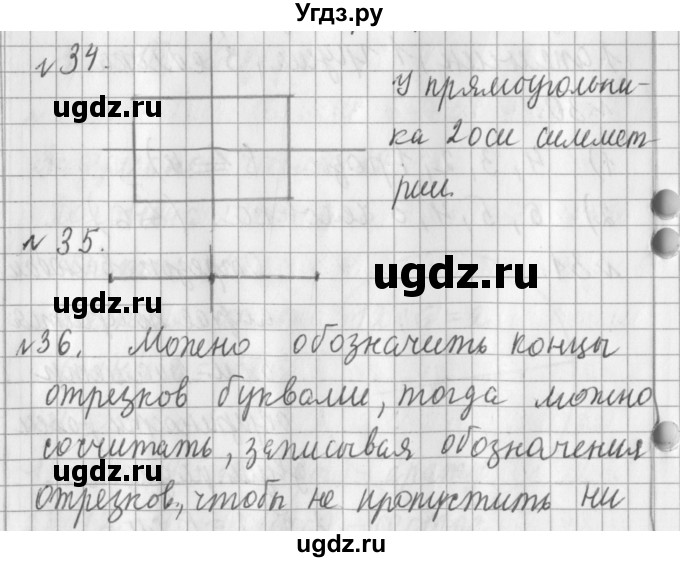 Угдз.ру
№34.
У прямоугольни-
ка 2 оси симмет-
рии.
ugdz.ru
№35.
ugdz.ru
ugdz.ru
№36. Можно обозначить концы
отрезков буквами, тогда можно
сосчитать, записывая обозначения
ugdz.ru
отрезков, чтобы не пропустить ни
ugdz.ru